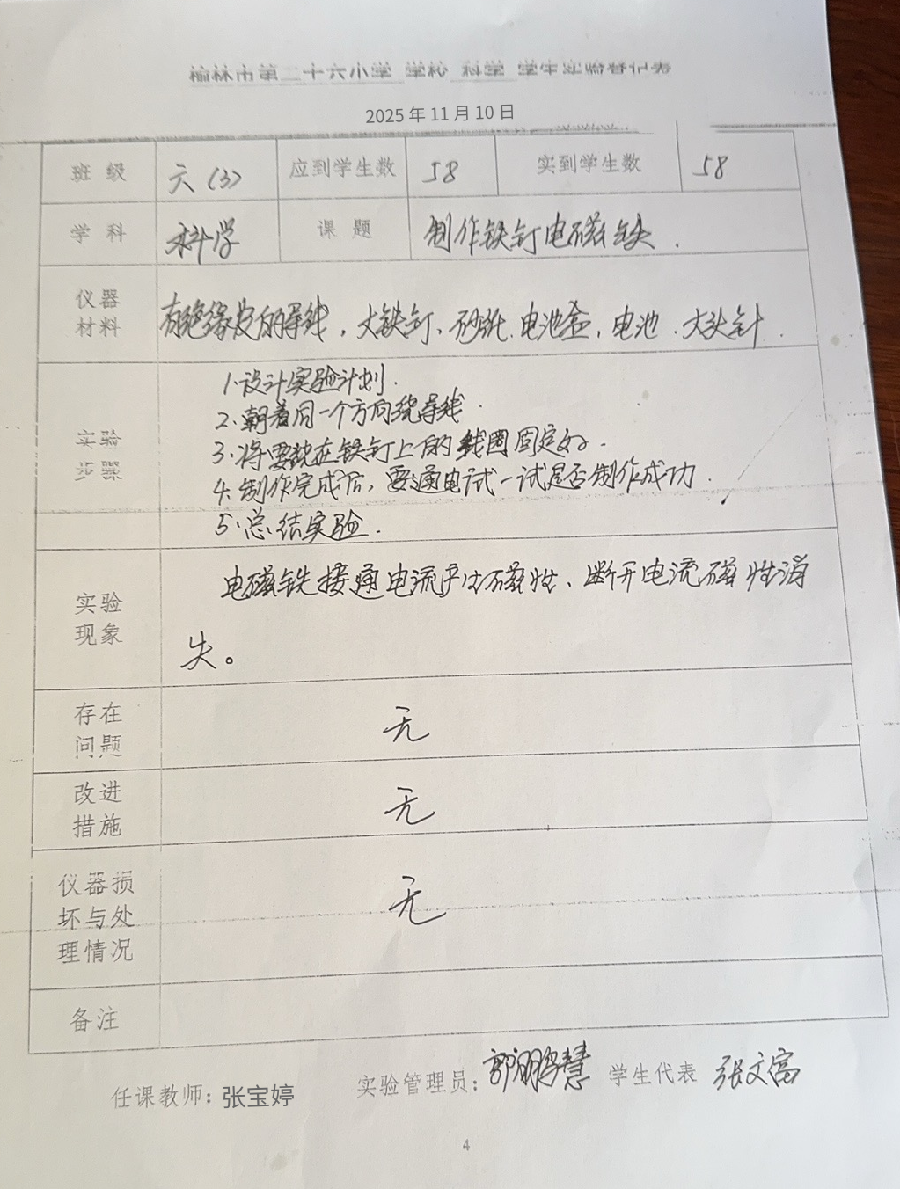 榆林市第二十六小学 学校 科学 学生实验登记表
2025年11月10日
班级 六(3) 应到学生数 58 实到学生数 58
学科 科学 课题 制作铁钉电磁铁.
仪器材料 有绝缘皮的导线,大铁钉、砂纸、电池盒,电池、大头针.
实验步骤
1.设计实验计划.
2.朝着同一个方向绕导线.
3.将要绕在铁钉上的线圈固定好.
4.制作完成后,要通电试一试是否制作成功.
5.总结实验.
实验现象
电磁铁接通电流产生磁性、断开电流磁性消
失。
存在问题 无
改进措施 无
仪器损坏与处理情况 无
备注
任课教师:张宝婷 实验管理员: 学生代表 张文富
4